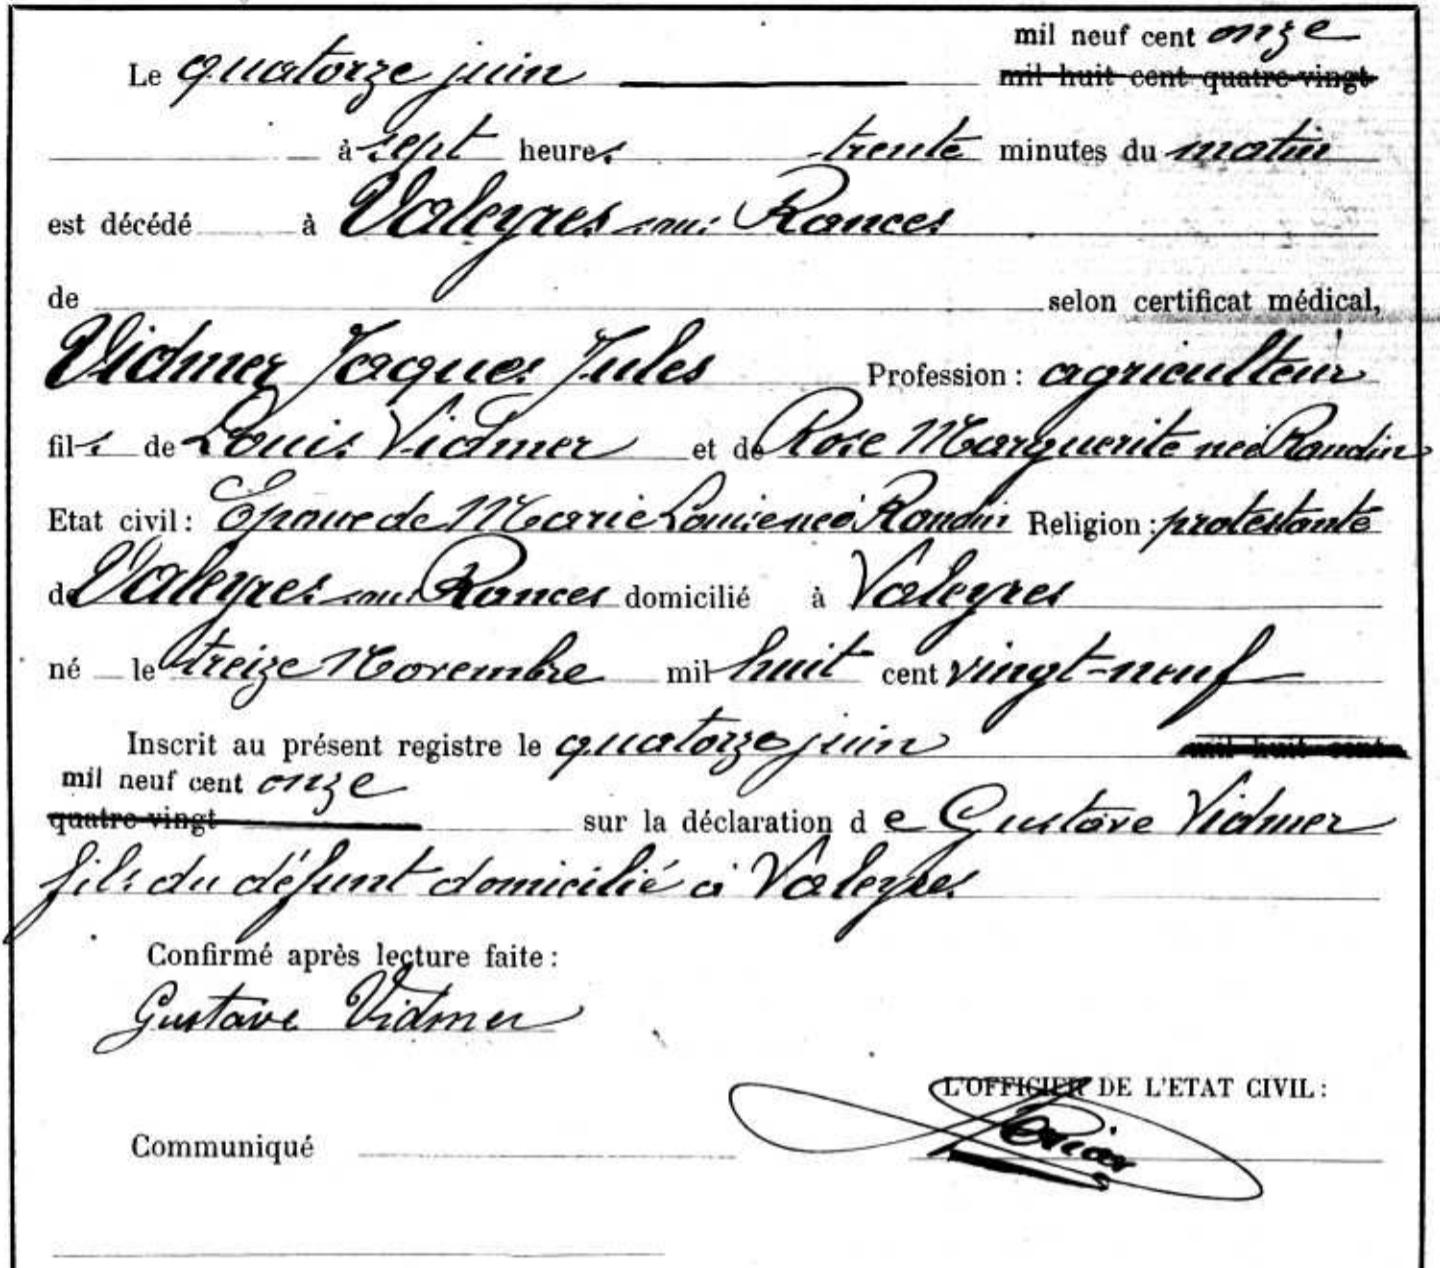 mil neuf cent onze
Le quatorze juin mil huit cent quatre-vingt
à sept heures trente minutes du matin
est décédé à Valeyres sous Rances
de selon certificat médical,
Vidmer Jaques Jules Profession : agriculteur
fils de Louis Vidmer et de Rose Marguerite née Randin
Etat civil : Epoux de Marie Louise née Randin Religion : protestante
de Valeyres sous Rances domicilié à Valeyres
né le treize Novembre mil huit cent vingt-neuf
Inscrit au présent registre le quatorze juin mil huit cent
mil neuf cent onze
quatre-vingt sur la déclaration d e Gustave Vidmer
fils du défunt domicilié à Valeyres
Confirmé après lecture faite :
Gustave Vidmer
L'OFFICIER DE L'ETAT CIVIL :
Communiqué